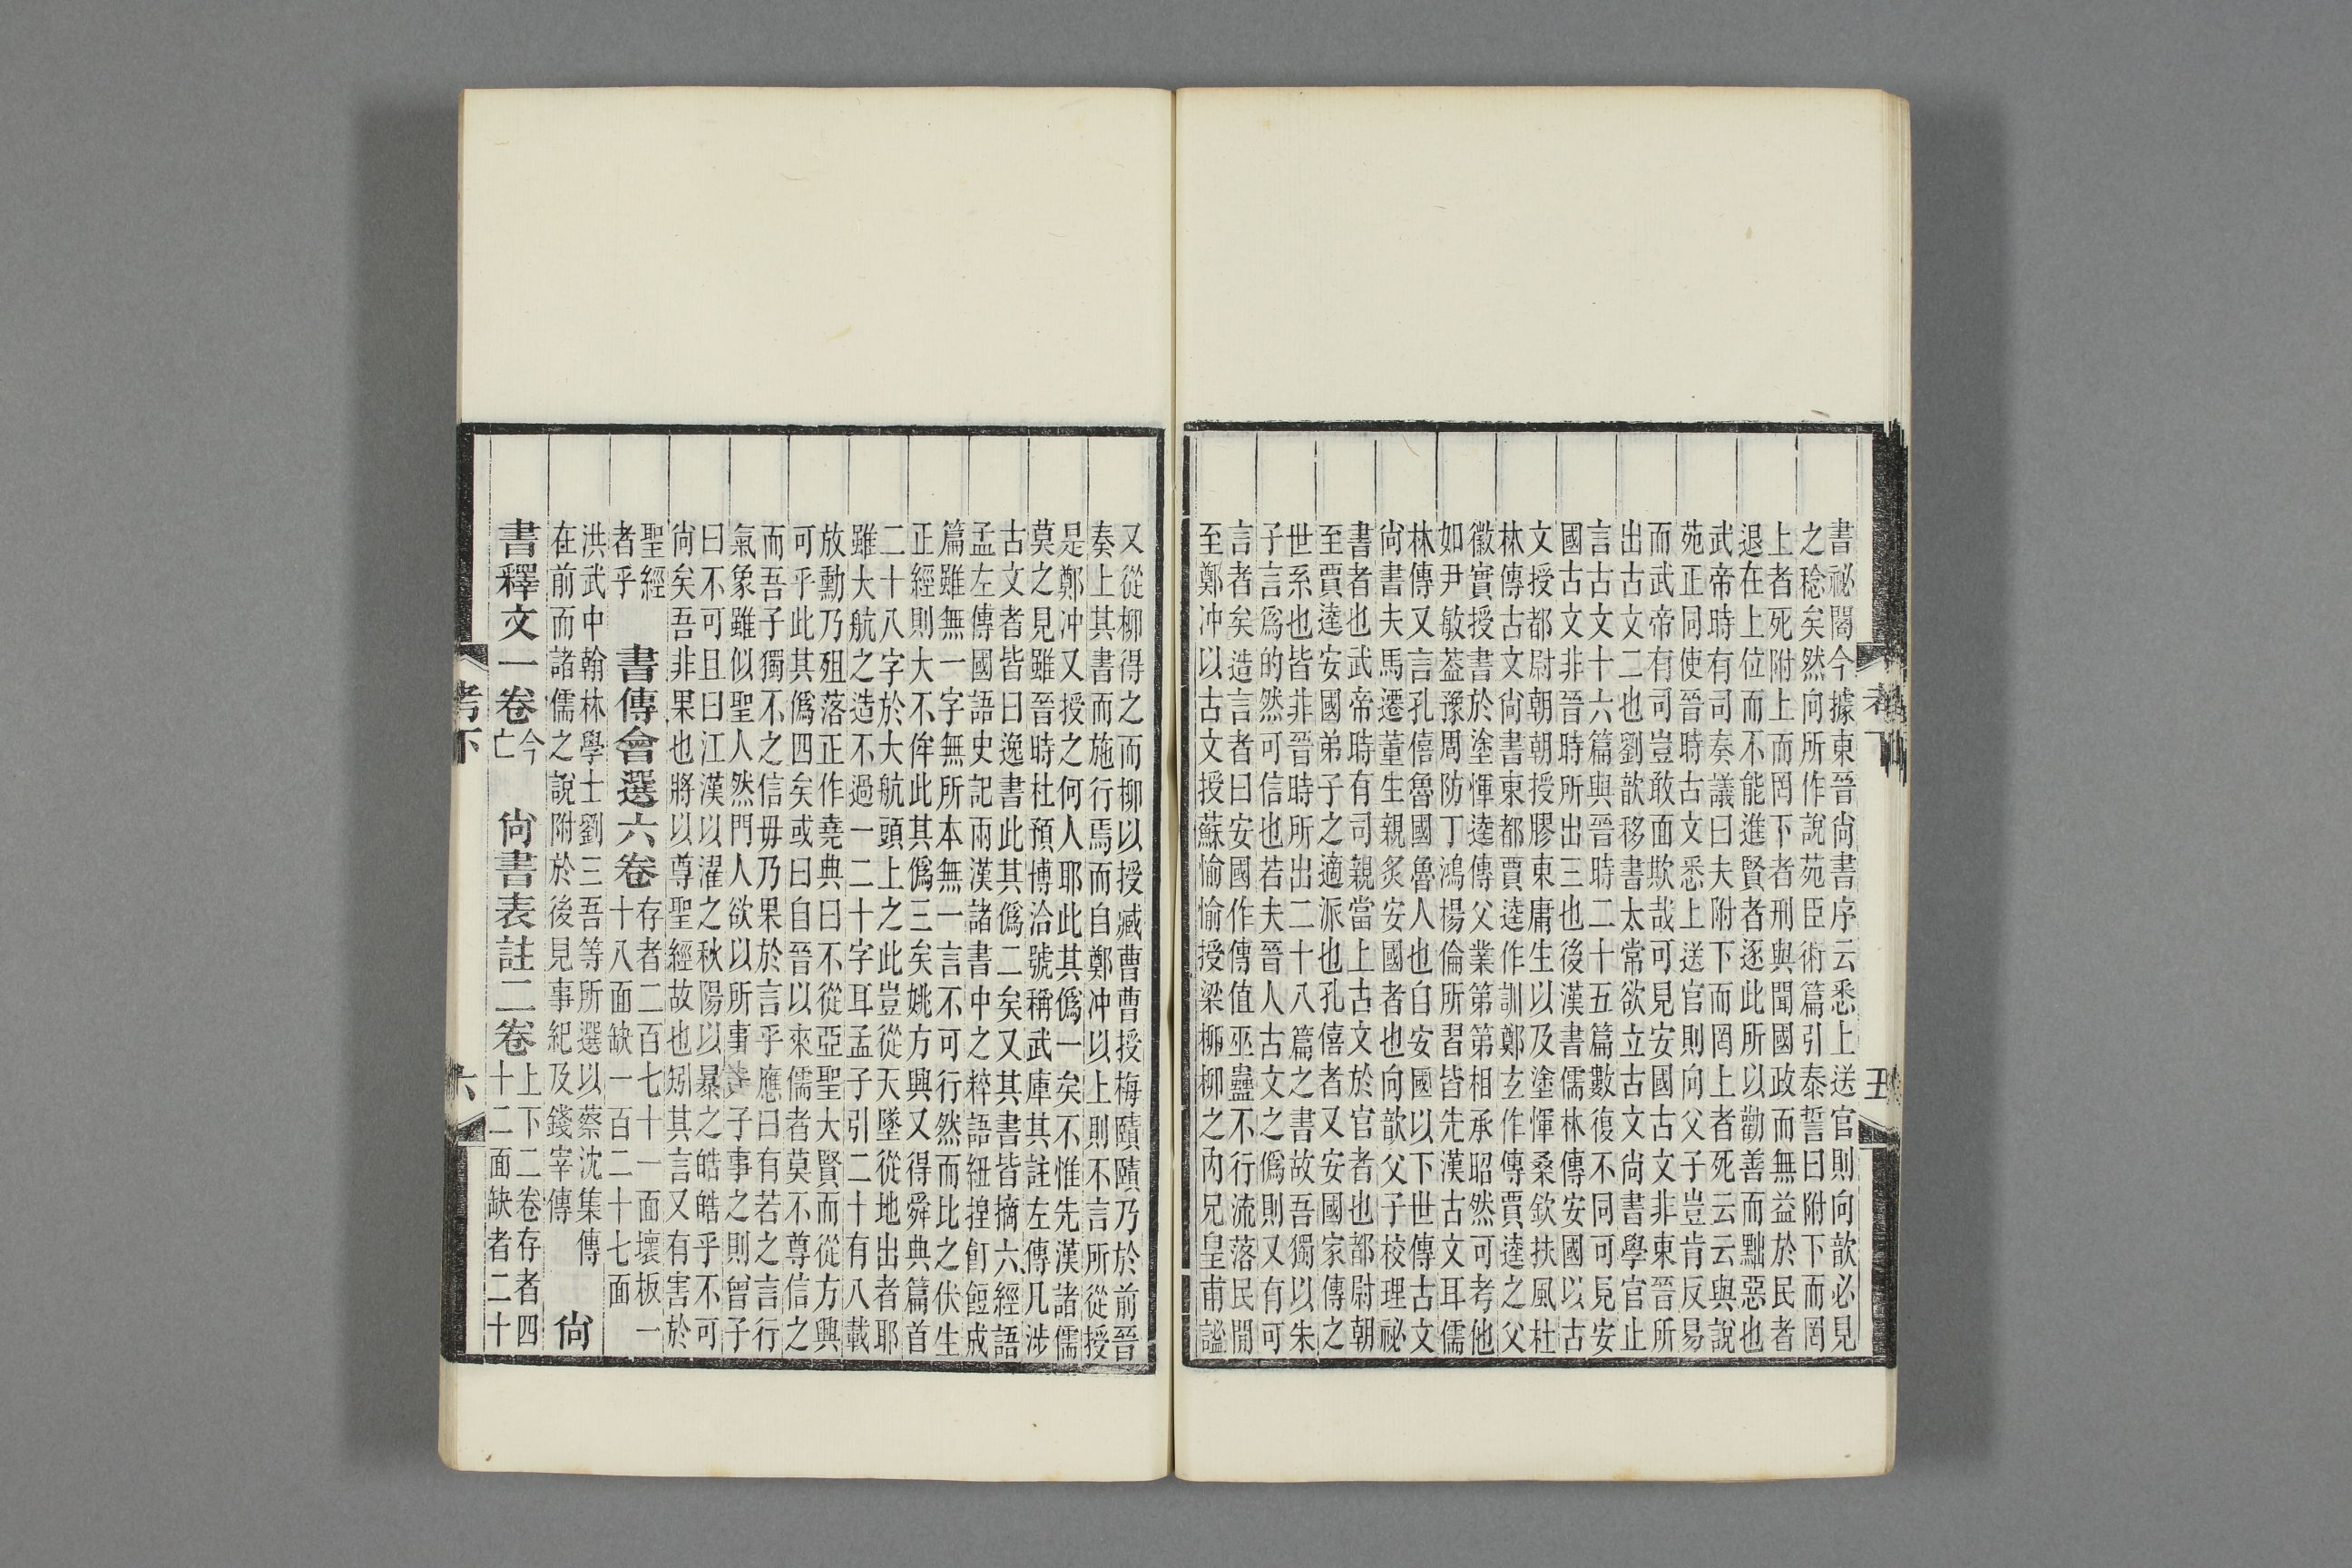 書祕閣今據東晉尙書序云悉上送官則向歆必見
之稔矣然向所作說苑臣術篇引泰誓曰附下而罔
上者死附上而罔下者刑與聞國政而無益於民者
退在上位而不能進賢者逐此所以勸善而黜惡也
武帝時有司奏議曰夫附下而罔上者死云云與說
苑正同使晉時古文悉上送官則向父子豈肯反易
而武帝有司豈敢面欺哉可見安國古文非東晉所
出古文二也劉歆移書太常欲立古文尙書學官止
言古文十六篇與晉時二十五篇數復不同可見安
國古文非晉時所出三也後漢書儒林傳安國以古
文授都尉朝朝授膠東庸生以及塗惲桑欽扶風杜
林傳古文尙書東都賈逵作訓鄭玄作傳賈逵之父
徽實授書於塗惲逵傳父業第第相承昭然可考他
如尹敏葢豫周防丁鴻楊倫所習皆先漢古文耳儒
林傳又言孔僖魯國魯人也自安國以下世傳古文
尙書夫馬遷董生親炙安國者也向歆父子校理祕
書者也武帝時有司親當上古文於官者也都尉朝
至賈逵安國弟子之適派也孔僖者又安國家傳之
世系也皆非晉時所出二十八篇之書故吾獨以朱
子言爲的然可信也若夫晉人古文之僞則又有可
言者矣造言者曰安國作傳值巫蠱不行流落民閒
至鄭冲以古文授蘇愉愉授梁柳柳之內兄皇甫謐
又從柳得之而柳以授臧曹曹授梅賾賾乃於前晉
奏上其書而施行焉而自鄭冲以上則不言所從授
是鄭冲又授之何人耶此其僞一矣不惟先漢諸儒
莫之見雖晉時杜預博洽號稱武庫其註左傳凡涉
古文者皆曰逸書此其僞二矣又其書皆摘六經語
孟左傳國語史記兩漢諸書中之粹語紐揑飣餖成
篇雖無一字無所本無一言不可行然而比之伏生
正經則大不侔此其僞三矣姚方興又得舜典篇首
二十八字於大航頭上之此豈從天墜從地出者耶
雖大航之造不過一二十字耳孟子引二十有八載
放勳乃殂落正作堯典曰不從亞聖大賢而從方興
可乎此其僞四矣或曰自晉以來儒者莫不尊信之
而吾子獨不之信毋乃果於言乎應曰有若之言行
氣象雖似聖人然門人欲以所事孔子事之則曾子
曰不可且曰江漢以濯之秋陽以暴之皓皓乎不可
尙矣吾非果也將以尊聖經故也矧其言又有害於
聖經
者乎
書傳會選六卷
存者二百七十一面壞板一
十八面缺一百二十七面
洪武中翰林學士劉三吾等所選以蔡沈集傳
在前而諸儒之說附於後見事紀及錢宰傳
尙
書釋文一卷
今
亡
尙書表註二卷
上下二卷存者四
十二面缺者二十
考下
六
五